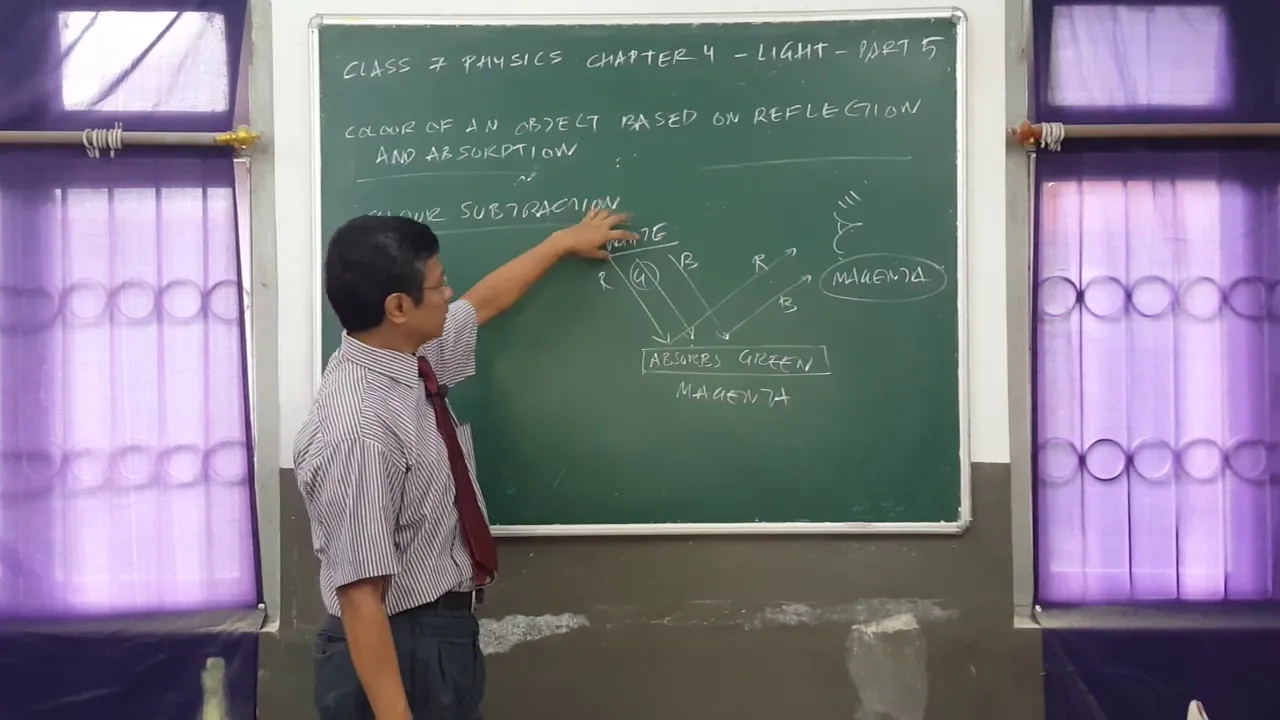 CLASS 7 PHYSICS CHAPTER 4 - LIGHT - PART 5
COLOUR OF AN OBJECT BASED ON REFLECTION
AND ABSORPTION
COLOUR SUBTRACTION
WHITE
R G B R B
MAGENTA
ABSORBS GREEN
MAGENTA